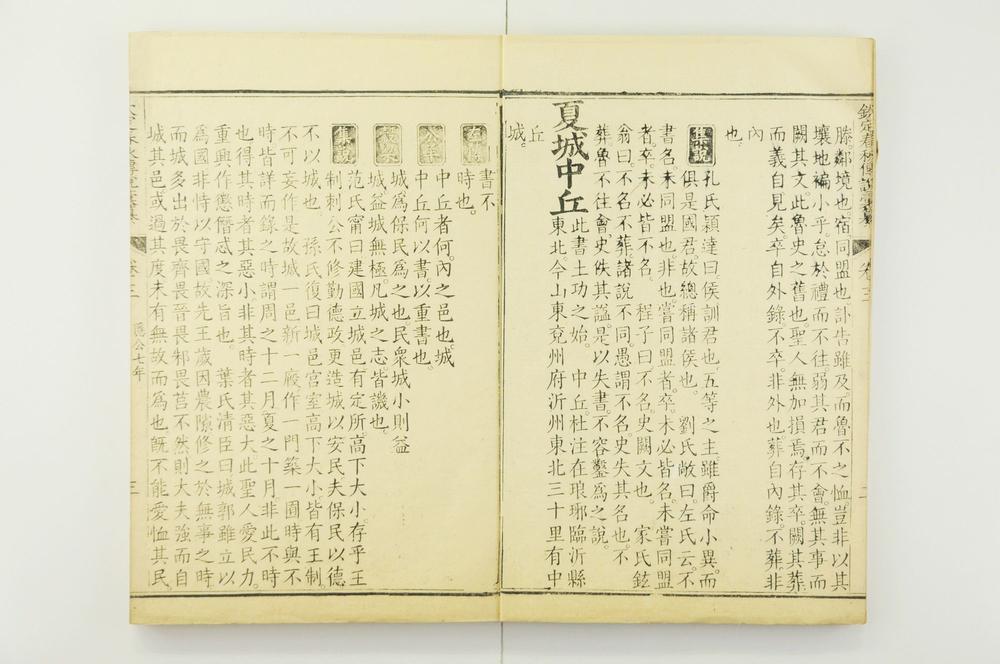 欽定春秋傳說彙纂 卷三 二
滕鄰境也宿同盟也訃告雖及而魯不之恤豈非以其
壤地褊小乎怠於禮而不往弱其君而不會無其事而
闕其文此魯史之舊也聖人無加損焉存其卒闕其葬
而義自見矣卒自外錄不卒非外也葬自內錄不葬非
內
也
集說 孔氏穎達曰侯訓君也五等之主雖爵命小異而
俱是國君故總稱諸侯也 劉氏敞曰左氏云不
書名未同盟也非也嘗同盟者卒未必皆名未嘗同盟
者卒未必皆不名 程子曰不名史闕文也 家氏鉉
翁曰不名不葬諸說不同愚謂不名史失其名也不
葬魯不往會史佚其謚是以失書不容鑿為之說
夏城中丘
此書土功之始 中丘杜注在琅琊臨沂縣
東北今山東兗州府沂州東北三十里有中
丘
城
左傳 書不
時也
公羊 中丘者何內之邑也城
中丘何以書以重書也
穀梁 城為保民為之也民眾城小則益
城益城無極凡城之志皆譏也
集說 范氏甯曰建國立城邑有定所高下大小存乎王
制刺公不修勤德政更造城以安民夫保民以德
不以城也 孫氏復曰城邑宮室高下大小皆有王制
不可妄作是故城一邑新一廄作一門築一囿時與不
時皆詳而錄之時謂周之十二月夏之十月非此不時
也得其時者其惡小非其時者其惡大此聖人愛民力
重興作懲僭忒之深旨也 葉氏清臣曰城郭雖立以
為國非恃以守國故先王歲因農隙修之於無事之時
而城多出於畏齊畏晉畏邾畏莒不然則大夫強而自
城其邑或過其度未有無故而為也旣不能愛恤其民
卷三 隱公七年 三